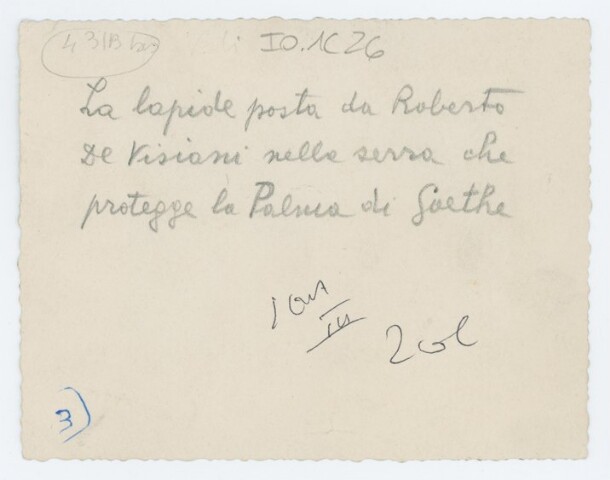 IO.1C26
La lapide posta da Roberto
De Visiani nella serra che
protegge la Palma di Goethe
2 col
3)